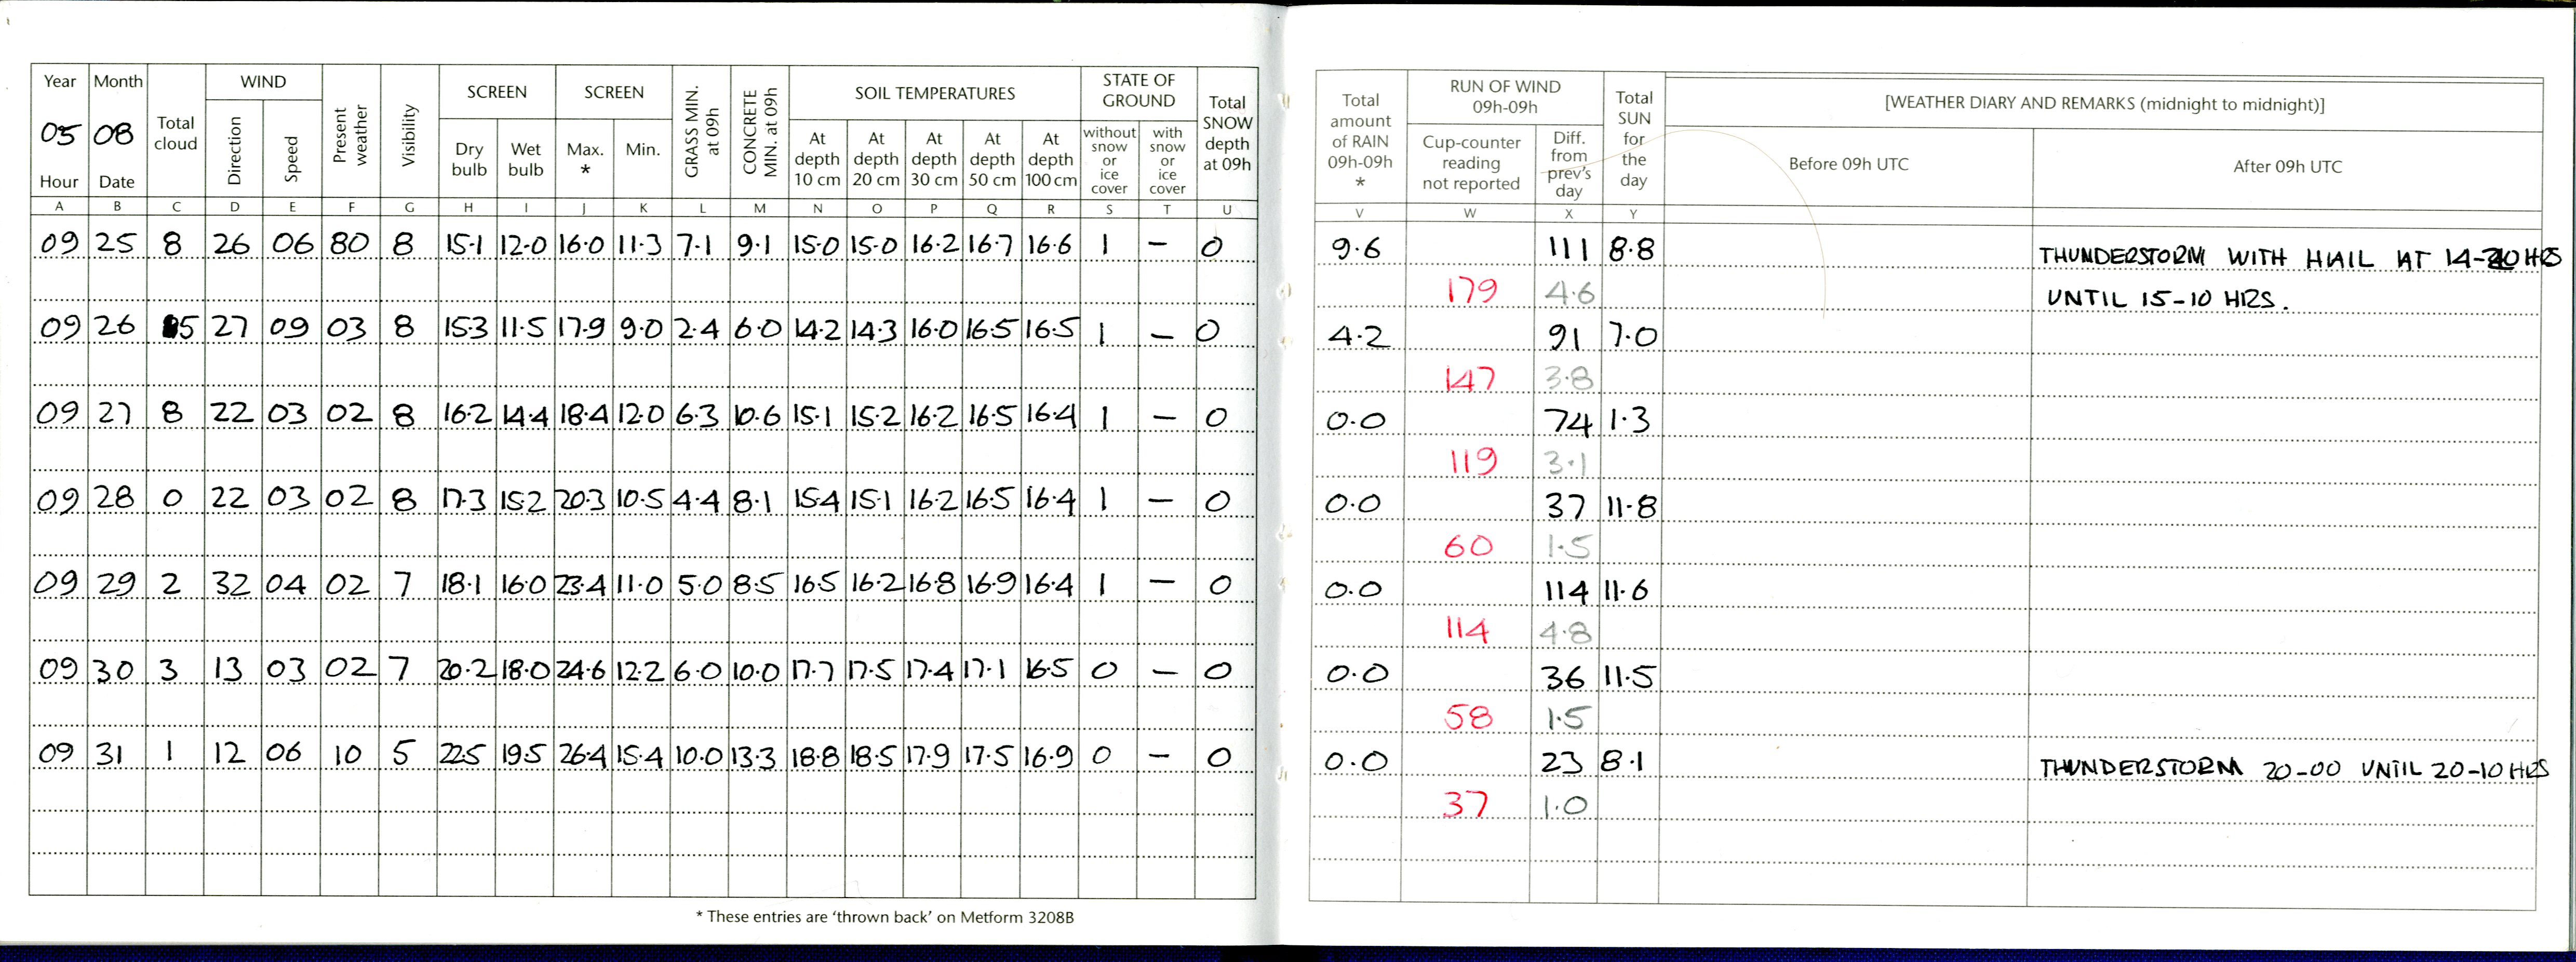 Year Month Total cloud WIND Present weather Visibility SCREEN SCREEN GRASS MIN. at 09h CONCRETE MIN. at 09h SOIL TEMPERATURES STATE OF GROUND Total SNOW depth at 09h
05 08 Direction Speed Dry bulb Wet bulb Max. * Min. At depth 10 cm At depth 20 cm At depth 30 cm At depth 50 cm At depth 100 cm without snow or ice cover with snow or ice cover
Hour Date
A B C D E F G H I J K L M N O P Q R S T U
09 25 8 26 06 80 8 15.1 12.0 16.0 11.3 7.1 9.1 15.0 15.0 16.2 16.7 16.6 1 – 0
09 26 5 27 09 03 8 15.3 11.5 17.9 9.0 2.4 6.0 14.2 14.3 16.0 16.5 16.5 1 – 0
09 27 8 22 03 02 8 16.2 14.4 18.4 12.0 6.3 10.6 15.1 15.2 16.2 16.5 16.4 1 – 0
09 28 0 22 03 02 8 17.3 15.2 20.3 10.5 4.4 8.1 15.4 15.1 16.2 16.5 16.4 1 – 0
09 29 2 32 04 02 7 18.1 16.0 23.4 11.0 5.0 8.5 16.5 16.2 16.8 16.9 16.4 1 – 0
09 30 3 13 03 02 7 20.2 18.0 24.6 12.2 6.0 10.0 17.7 17.5 17.4 17.1 16.5 0 – 0
09 31 1 12 06 10 5 22.5 19.5 26.4 15.4 10.0 13.3 18.8 18.5 17.9 17.5 16.9 0 – 0
* These entries are 'thrown back' on Metform 3208B
Total amount of RAIN 09h-09h * RUN OF WIND 09h-09h Total SUN for the day [WEATHER DIARY AND REMARKS (midnight to midnight)]
Cup-counter reading not reported Diff. from prev's day Before 09h UTC After 09h UTC
V W X Y
9.6 111 8.8 THUNDERSTORM WITH HAIL AT HRS
179 4.6 UNTIL 15-10 HRS.
4.2 91 7.0
147 3.8
0.0 74 1.3
119 3.1
0.0 37 11.8
60 1.5
0.0 114 11.6
114 4.8
0.0 36 11.5
58 1.5
0.0 23 8.1 THUNDERSTORM 20-00 UNTIL 20-10 HRS
37 1.0